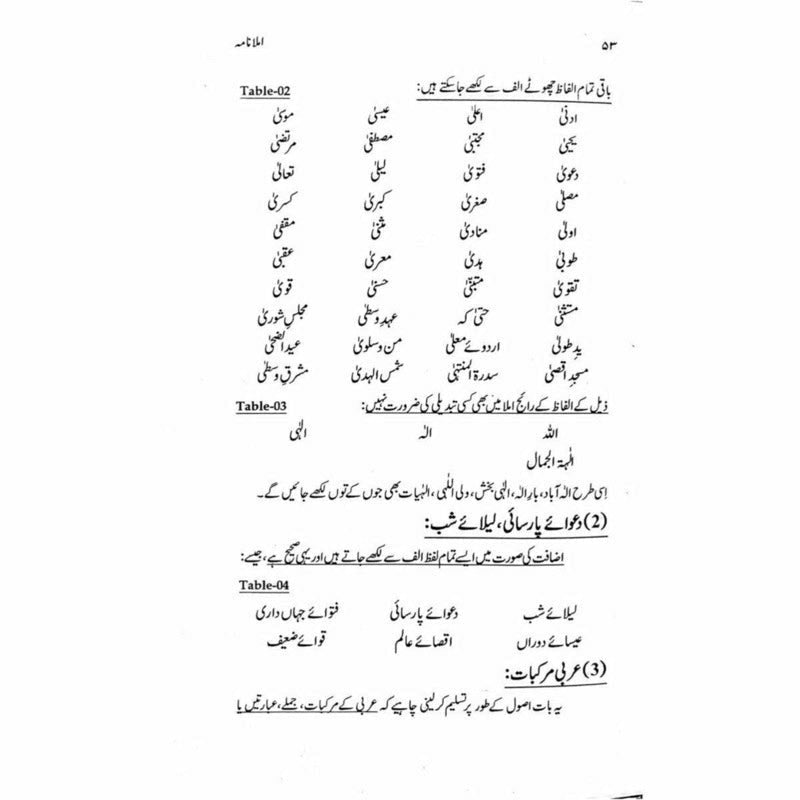 ۵۳ املا نامہ
باقی تمام الفاظ چھوٹے الف سے لکھے جا سکتے ہیں: Table-02
ادنیٰ اعلیٰ عیسیٰ موسیٰ
یحییٰ مجتبیٰ مصطفیٰ مرتضیٰ
دعویٰ فتویٰ لیلیٰ تعالیٰ
مصلیٰ صغریٰ کبریٰ کسریٰ
اولیٰ منادیٰ مثنیٰ مقفیٰ
طوبیٰ ہدیٰ معریٰ عقبیٰ
تقویٰ متبنّیٰ حسنیٰ قویٰ
مستثنیٰ حتیٰ کہ عہدِ وسطیٰ مجلسِ شوریٰ
یدِ طولیٰ اردوئے معلیٰ من و سلویٰ عید الضحیٰ
مسجدِ اقصیٰ سدرۃ المنتہیٰ شمس الہدیٰ مشرقِ وسطیٰ
ذیل کے الفاظ کے رائج املا میں بھی کسی تبدیلی کی ضرورت نہیں: Table-03
اللہ الٰہ الٰہی
الٰہۃ الجمال
اِسی طرح الٰہ آباد، بارِ الٰہ، الٰہی بخش، ولی اللّٰہی، الٰہیات بھی جوں کے توں لکھے جائیں گے۔
(2) دعوائے پارسائی، لیلائے شب:
اضافت کی صورت میں ایسے تمام لفظ الف سے لکھے جاتے ہیں اور یہی صحیح ہے، جیسے:
Table-04
لیلائے شب دعوائے پارسائی فتوائے جہاں داری
عیسائے دوراں اقصائے عالم قوائے ضعیف
(3) عربی مرکبات:
یہ بات اصول کے طور پر تسلیم کر لینی چاہیے کہ عربی کے مرکبات، جملے، عبارتیں یا